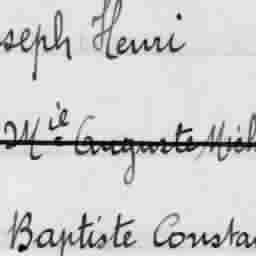 seph Henri
Mie Auguste Mich
Baptiste Consta